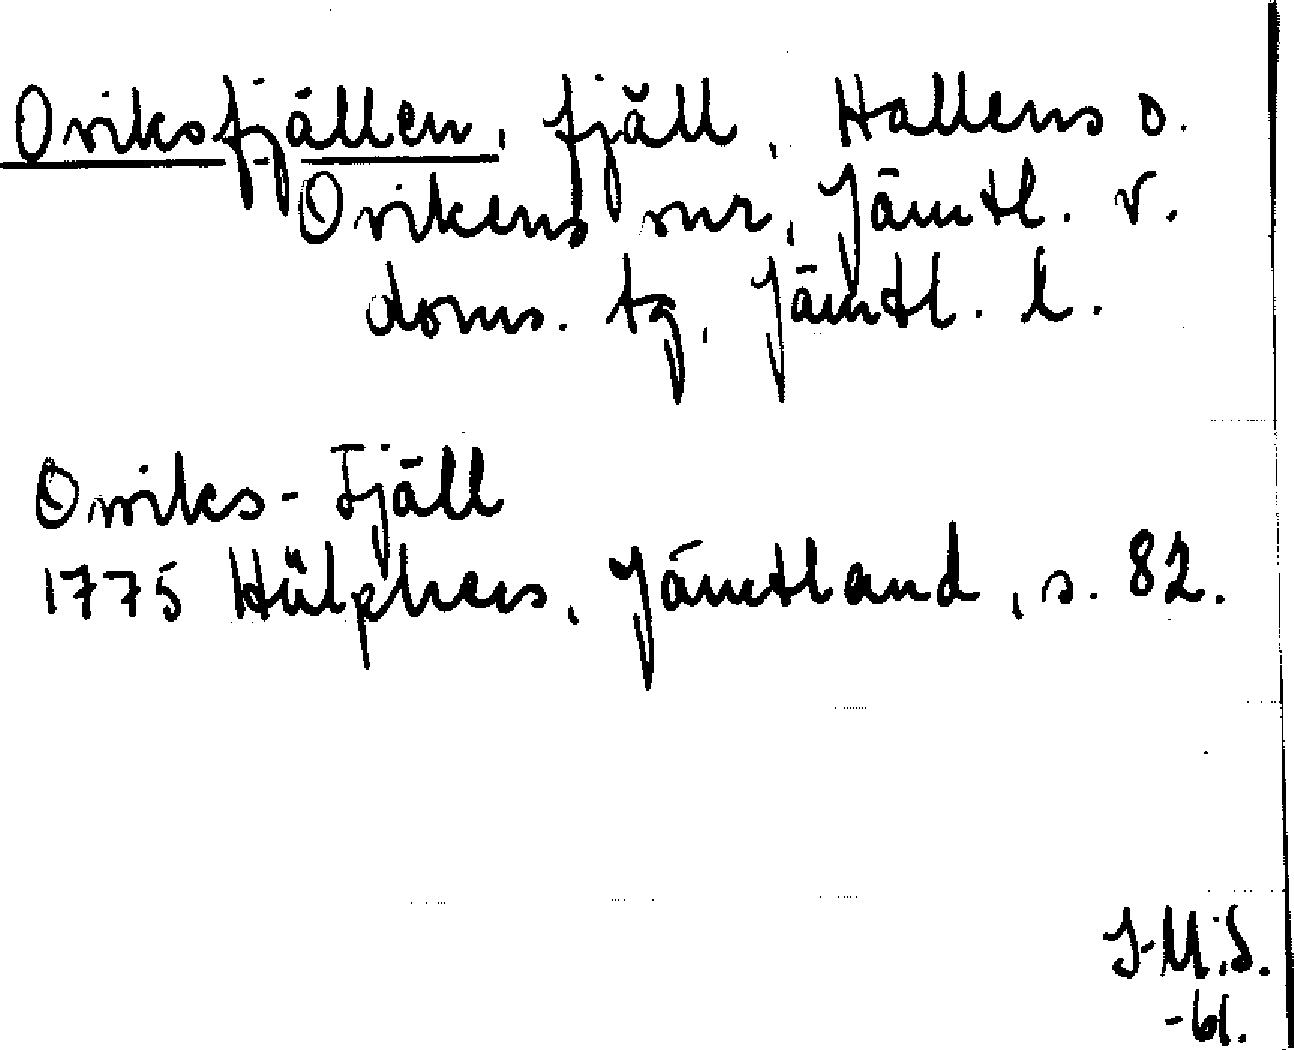 Oviksfjällen, fjäll, Hallens o.
Ovikens snr, Jämtl. v.
doms. tg, Jämtl. l.
Owiks-Fjäll
1775 Hülphers, Jämtland, s. 82.
I-M.S.
-61.